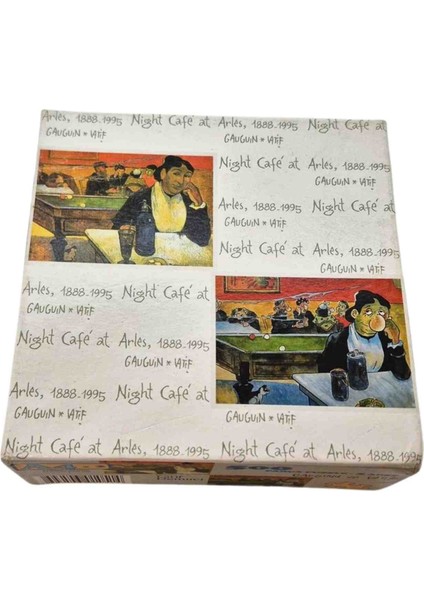 Arles, 1888-1995 Night Café at Arles, 1888-1995
GAUGUIN * LATİF GAUGUIN * LATİF
Night Café at Arles,
GAUGUIN * LATİF
Arles, 1888-1995 Night
GAUGUIN * LATİF
Night Café at Arles,
GAUGUIN * LATİF
Arles, 1888-1995 Night Café at
GAUGUIN * LATİF
Night Café at Arles, 1888-1995
GAUGUIN * LATİF
Arles, 1888-1995 Night Café at
GAUGUIN * LATİF GAUGUIN * LATİF
Night Café at Arles, 1888-1995 Night Café at Arles, 1888-1995
500